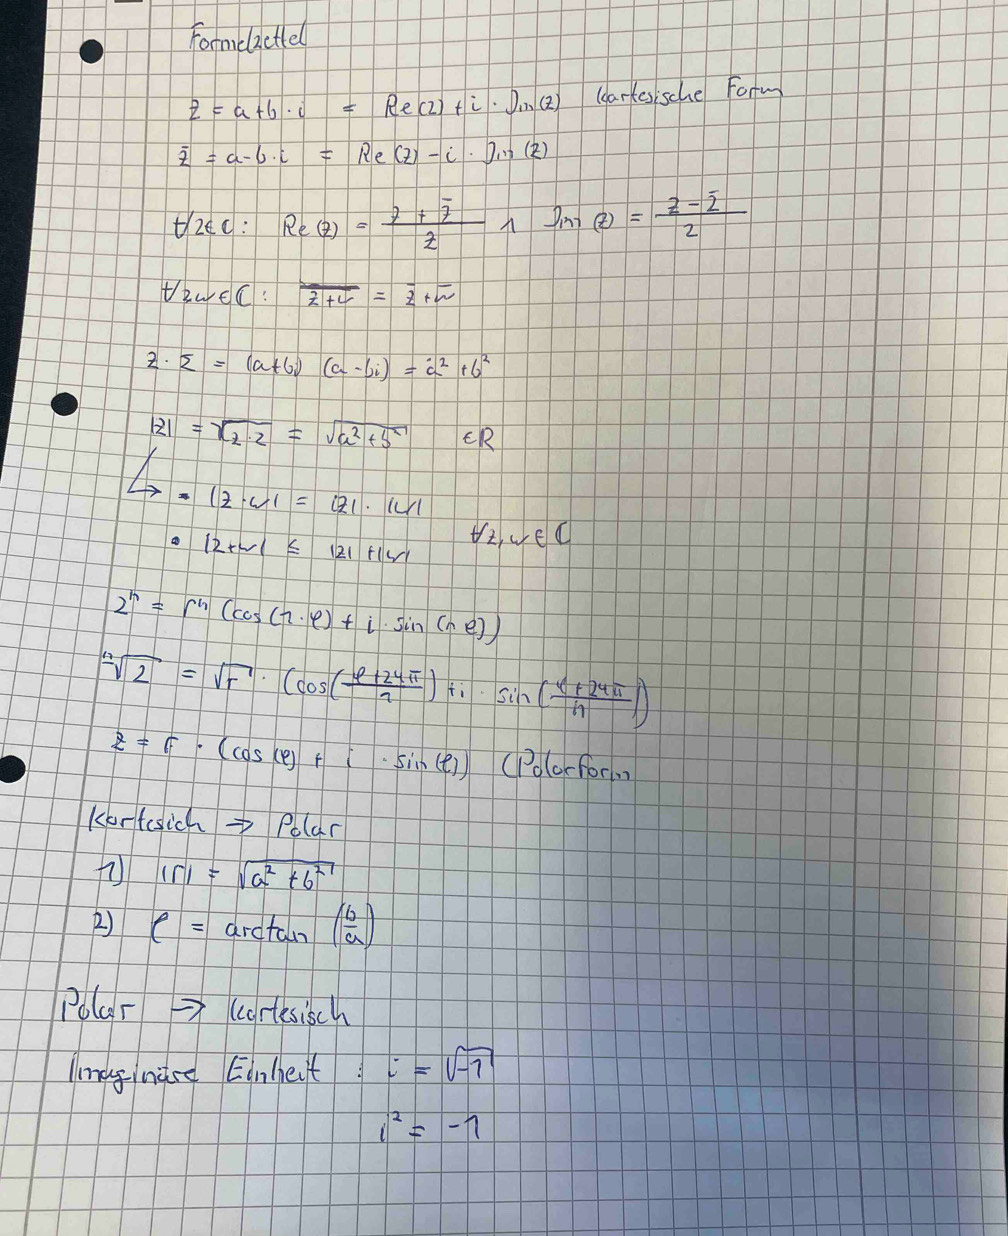 Formelzettel
z = a+b·i = Re(z) + i · Im(z) kartesische Form
z̄ = a-b·i = Re(z) - i · Im(z)
∀z∈ℂ: Re(z) = (z + z̄)/2 ∧ Im(z) = (z - z̄)/2
∀z,w∈ℂ: \overline{z+w} = z̄ + w̄
z · z̄ = (a+bi) (a-bi) = a² + b²
|z| = √(z·z) = √(a²+b²) ∈R
↳ • |z·w| = |z| · |w|
• |z+w| ≤ |z| + |w| ∀z,w∈ℂ
zⁿ = rⁿ (cos(n·φ) + i · sin(n φ))
ⁿ√z = √r · (cos((φ+2kπ)/n) + i · sin((φ+2kπ)/n))
z = r · (cos(φ) + i · sin(φ)) (Polarform
Kartesich ⇒ Polar
1) |r| = √(a²+b²)
2) φ = arctan (b/a)
Polar ⇒ kartesisch
Imaginäre Einheit : i = √-1
i² = -1